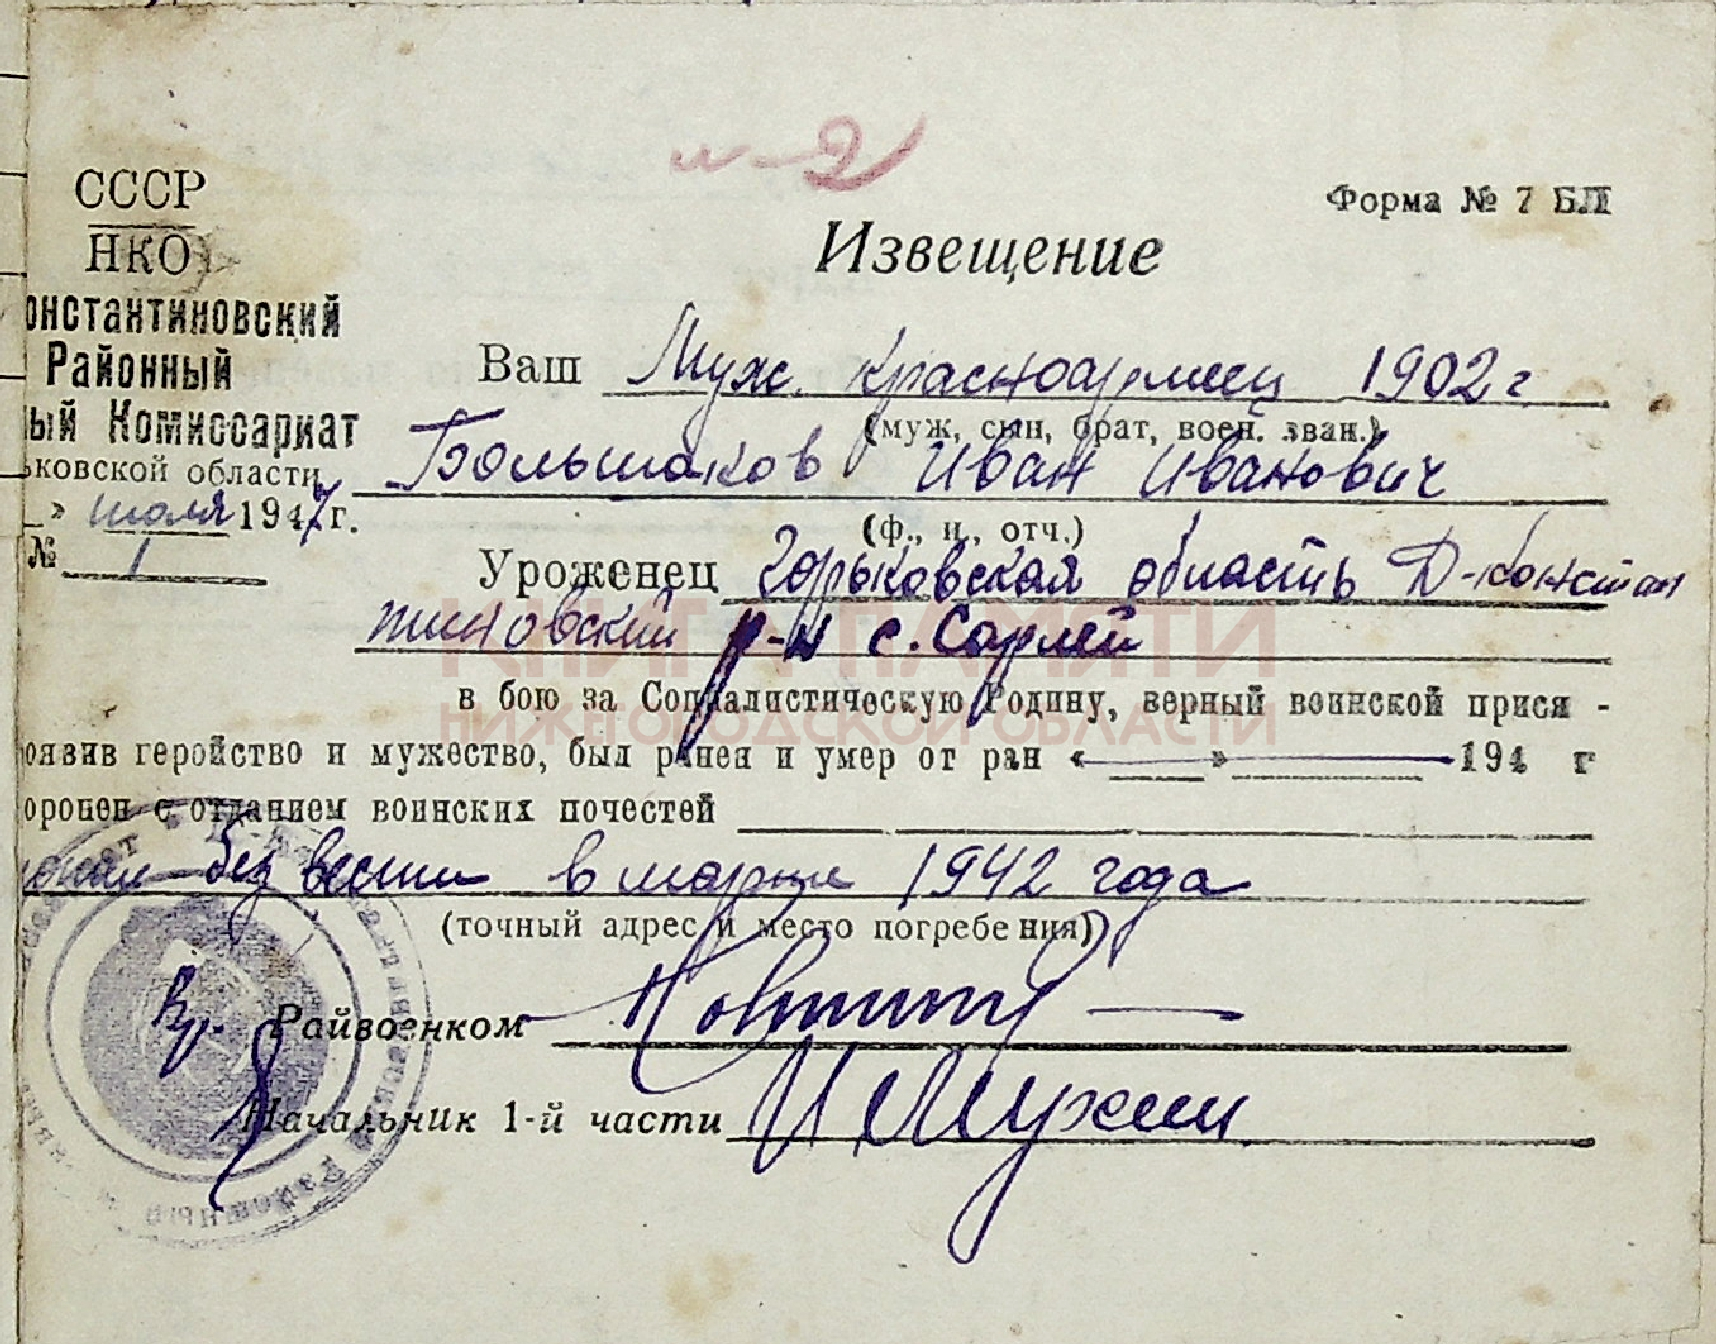 и-2
Форма № 7 БЛ
СССР
НКО
Извещение
онстантиновский
Районный
ый Комиссариат
ьковской области
» июля 1947 г.
№ 1
Ваш Муж. красноармеец 1902 г.
(муж, сын, брат, воен. зван.)
Большаков Иван Иванович
(ф., и., отч.)
Уроженец Горьковская область Д-Констан
тиновский р-н с. Сарлей
КНИГА ПАМЯТИ
в бою за Социалистическую Родину, верный воинской прися -
НИЖЕГОРОДСКОЙ ОБЛАСТИ
роявив геройство и мужество, был ранен и умер от ран « » 194 г
оронен с отданием воинских почестей
опал без вести в марте 1942 года
(точный адрес и место погребения)
Вр. Райвоенком
Начальник 1-й части И Мухин